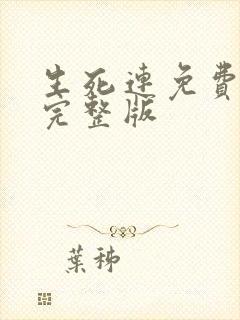 生死連免費
完整版
葉稀